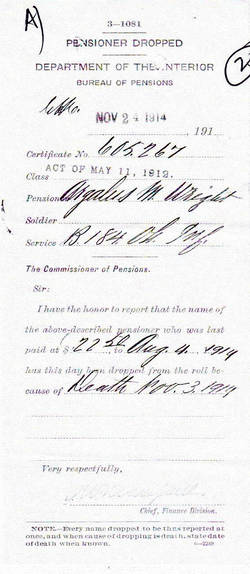 A)
2
3—1081
PENSIONER DROPPED
DEPARTMENT OF THE INTERIOR
BUREAU OF PENSIONS
NOV 24 1914
191
Certificate No. 605,267
Class ACT OF MAY 11, 1912.
Pensioner Argalus M. Wright
Soldier
Service B. 184 Oh. Inf.
The Commissioner of Pensions.
Sir:
I have the honor to report that the name of
the above-described pensioner who was last
paid at $ 22.50, to Aug. 4, 1914
has this day been dropped from the roll be-
cause of Death Nov. 3, 1914
Very respectfully,
Chief, Finance Division.
NOTE.—Every name dropped to be thus reported at
once, and when cause of dropping is death, state date
of death when known.